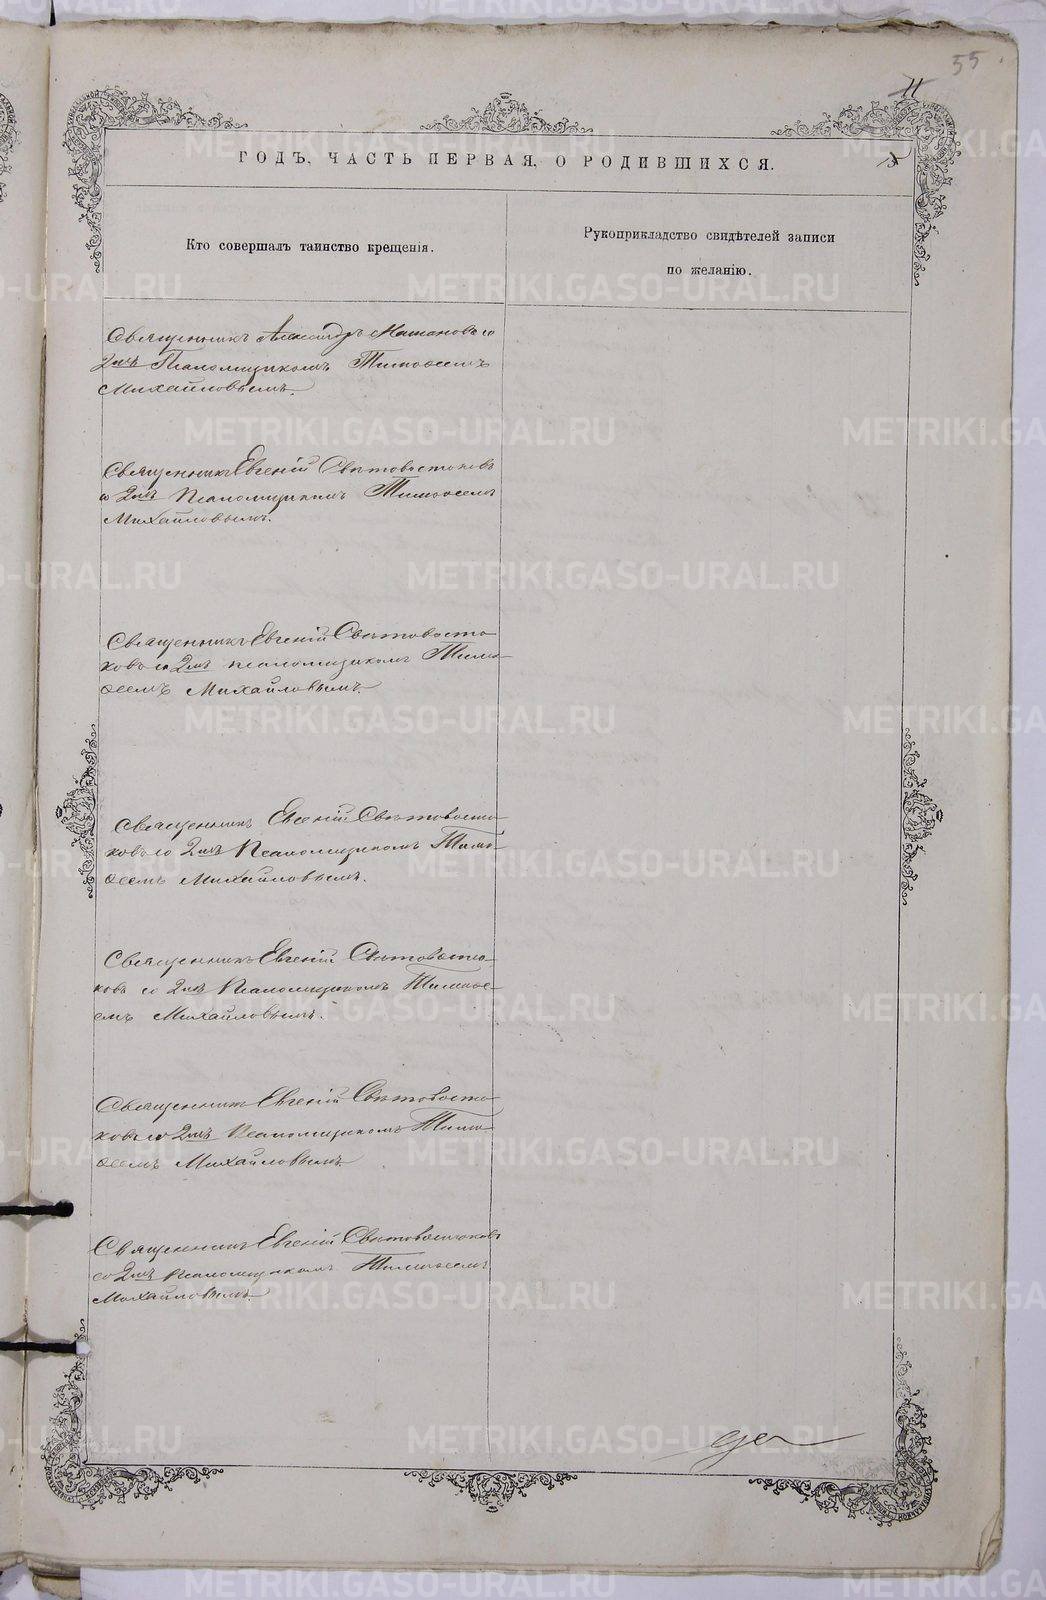 55
11
ГОДЪ, ЧАСТЬ ПЕРВАЯ, О РОДИВШИХСЯ.
Кто совершалъ таинство крещенія.
Рукоприкладство свидѣтелей записи
по желанію.
Священникъ Александръ со
2мъ Псаломщикомъ Тимоѳеемъ
Михайловымъ.
Священникъ Евгеній Свѣтовостоковъ
со 2мъ Псаломщикомъ Тимоѳеемъ
Михайловымъ.
Священникъ Евгеній Свѣтовосто-
ковъ со 2мъ псаломщикомъ Тимо-
ѳеемъ Михайловымъ.
Священникъ Евгеній Свѣтовосто-
ковъ со 2мъ Псаломщикомъ Тимо-
ѳеемъ Михайловымъ.
Священникъ Евгеній Свѣтовосто-
ковъ со 2мъ Псаломщикомъ Тимоѳе-
емъ Михайловымъ.
Священникъ Евгеній Свѣтовосто-
ковъ со 2мъ Псаломщикомъ Тимо-
ѳеемъ Михайловымъ.
Священникъ Евгеній Свѣтовостоковъ
со 2мъ Псаломщикомъ Тимоѳеемъ
Михайловымъ.
METRIKI.GASO-URAL.RU